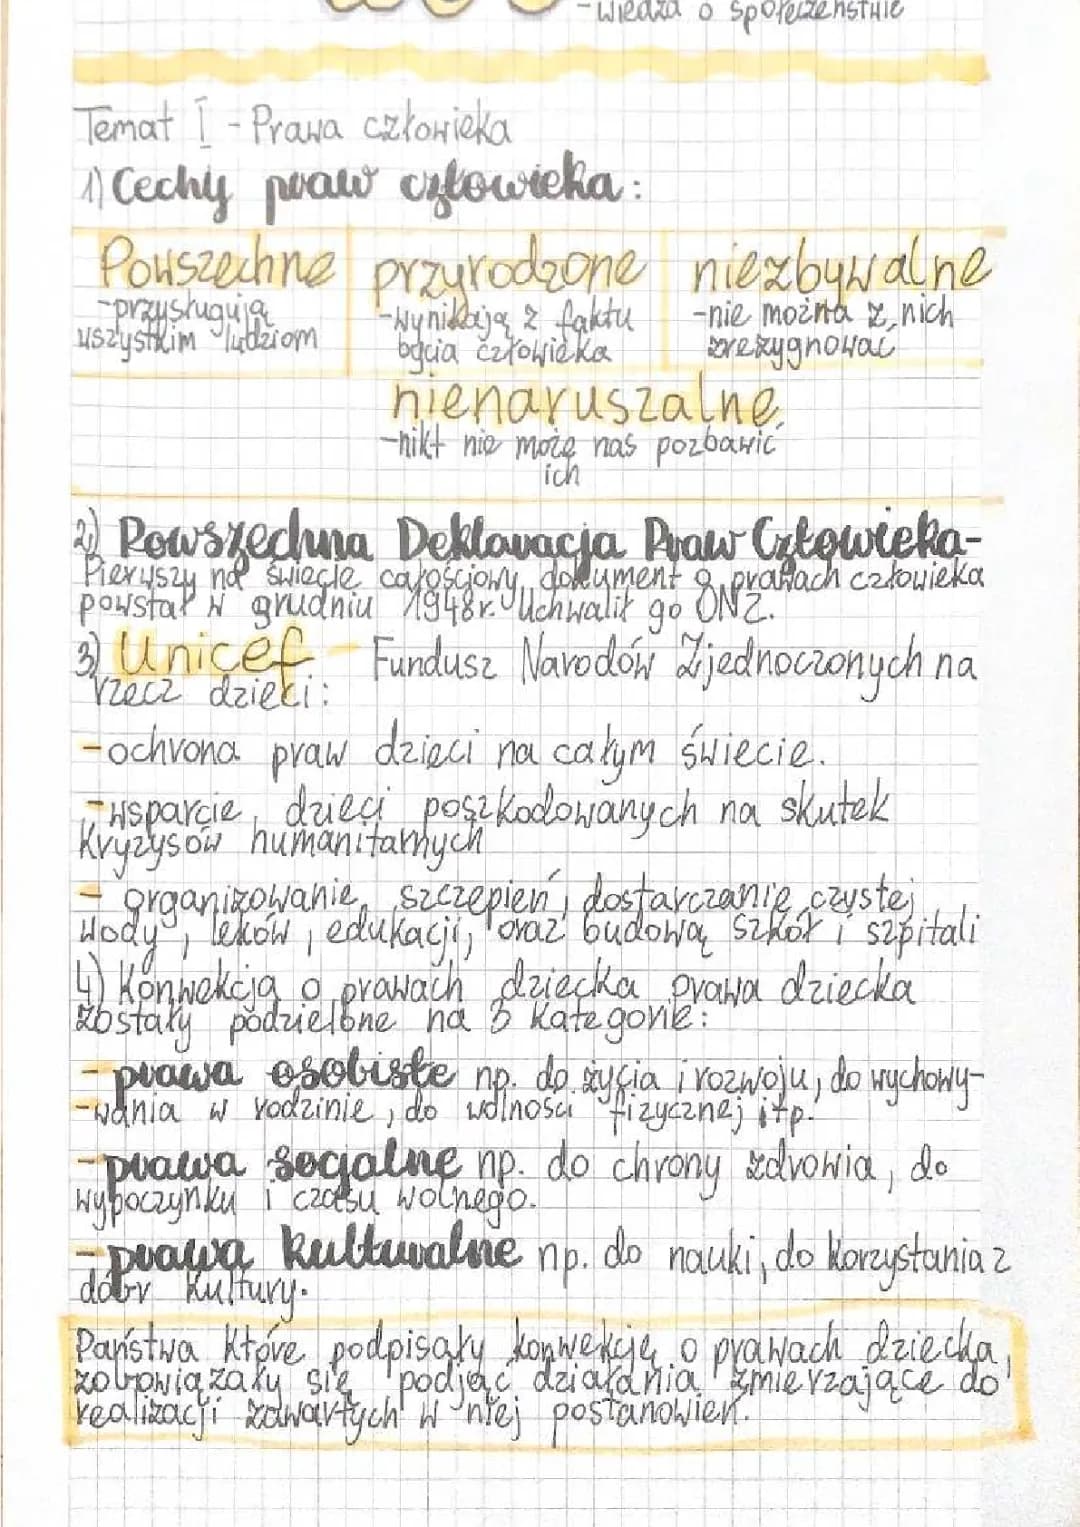 - wiedza o społeczeństwie
Temat I - Prawa człowieka
1) Cechy praw człowieka:
Powszechne
-przysługują
wszystkim ludziom
przyrodzone
-wynikają z faktu
bycia człowieka
niezbywalne
-nie można z nich
zrezygnować
nienaruszalne
-nikt nie może nas pozbawić
ich
2) Powszechna Deklaracja Praw Człowieka-
Pierwszy na świecie całościowy dokument o prawach człowieka
powstał w grudniu 1948r. Uchwalił go ONZ.
3) Unicef - Fundusz Narodów Zjednoczonych na
rzecz dzieci:
-ochrona praw dzieci na całym świecie.
-wsparcie dzieci poszkodowanych na skutek
kryzysów humanitarnych
- organizowanie szczepień, dostarczanie czystej
wody, leków, edukacji, oraz budową szkół i szpitali
4) Konwekcja o prawach dziecka prawa dziecka
zostały podzielone na 3 kategorie:
-prawa osobiste np. do życia i rozwoju, do wychowy-
-wania w rodzinie, do wolności fizycznej itp.
-prawa socjalne np. do chrony zdrowia, do
wypoczynku i czasu wolnego.
-prawa kulturalne np. do nauki, do korzystania z
dóbr kultury.
Państwa które podpisały konwekcję o prawach dziecka,
zobowiązały się podjąć działania zmierzające do
realizacji zawartych w niej postanowień.